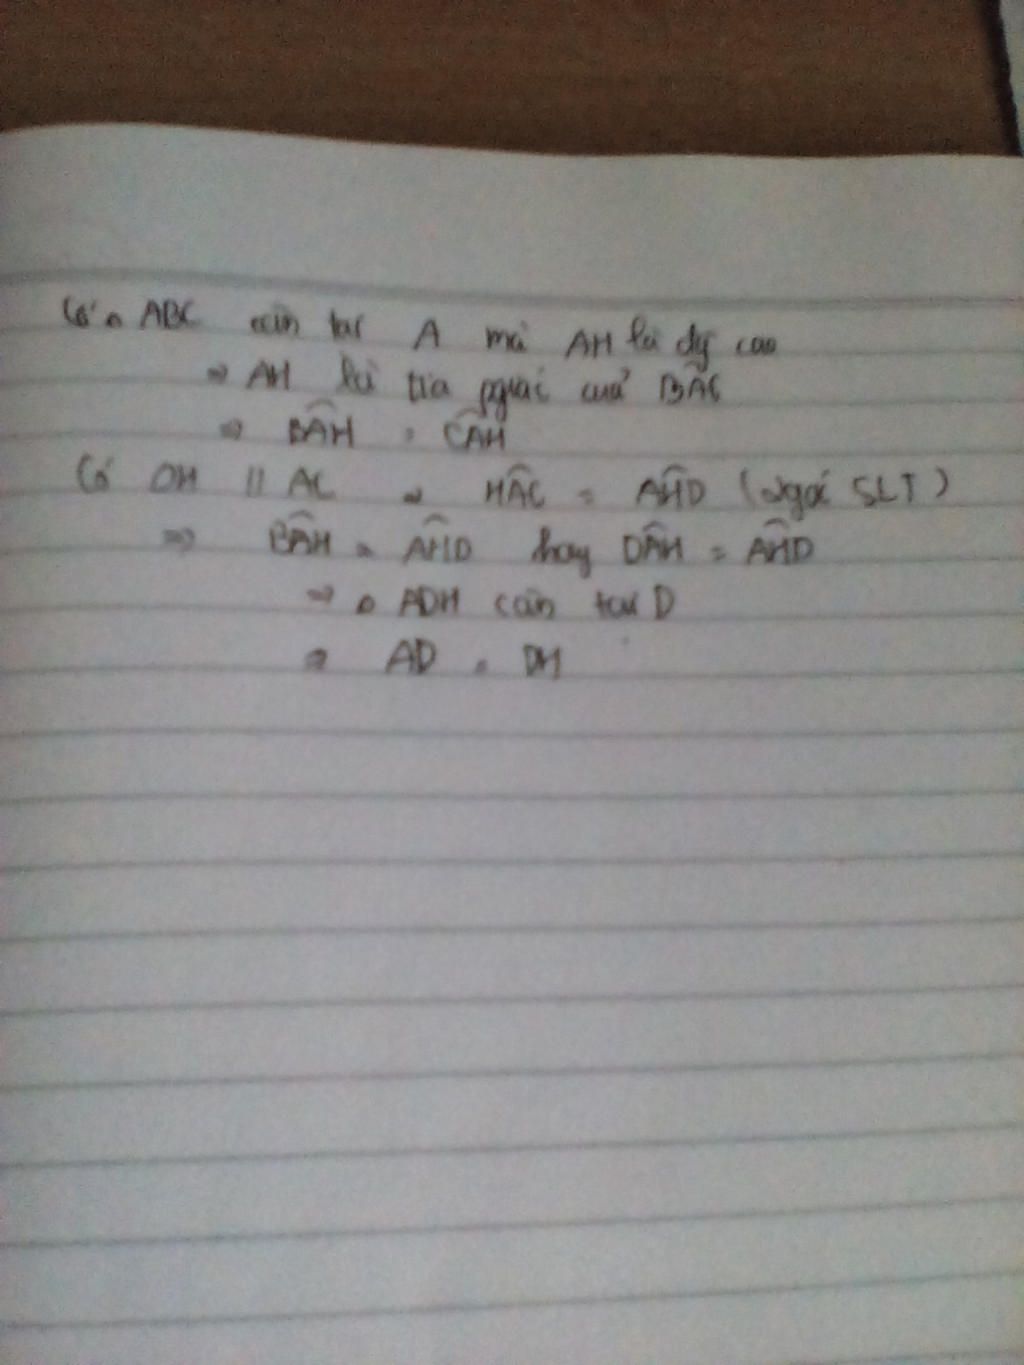 Có △ ABC cân tại A mà AH là đg cao
⇒ AH là tia pgiác của BÂC
⇒ BÂH = CÂH
Có DH // AC ⇒ HÂC = AĤD (2 góc SLT)
⇒ BÂH = AĤD hay DÂH = AĤD
⇒ △ ADH cân tại D
⇒ AD = DH